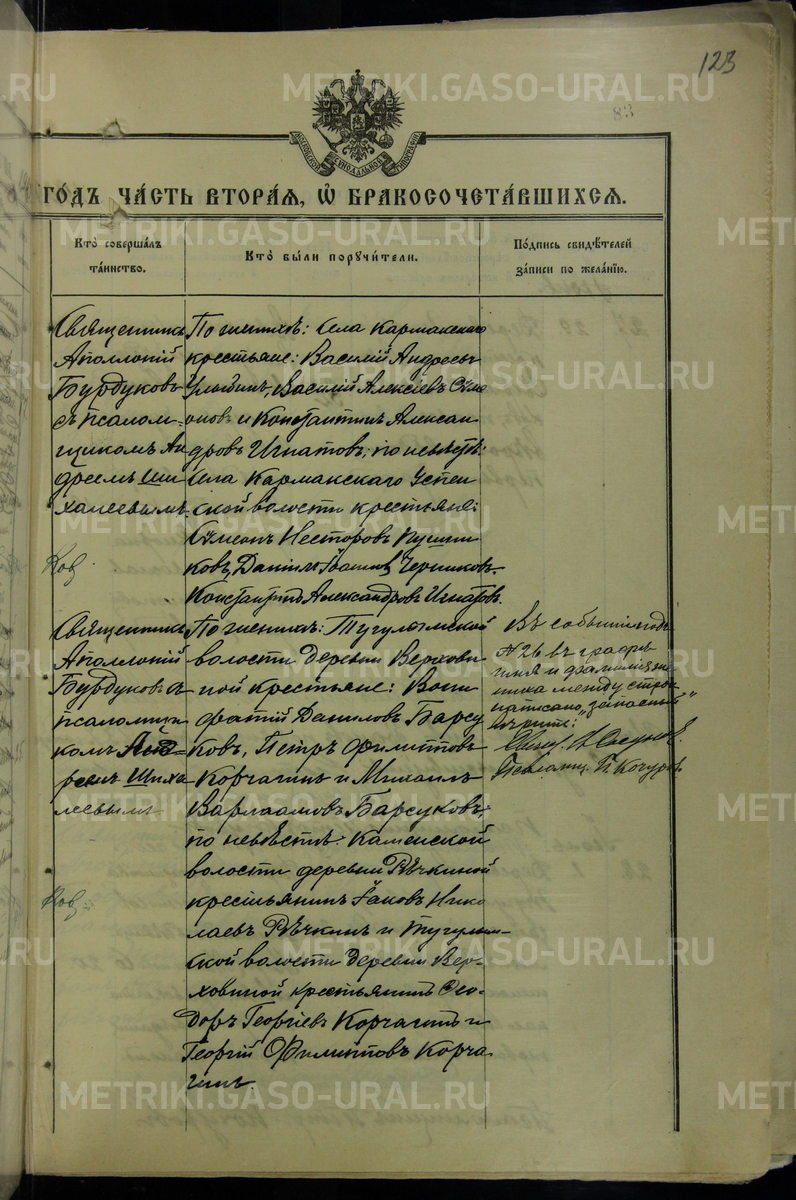 123
83
МОСКОВСКОЙ СѴНОДАЛЬНОЙ ТИПОГРАФІИ
ГО́ДЪ ЧА́СТЬ ВТОРА́Я, Ѡ҆ БРАКОСОЧЕТА́ВШИХСЯ.
Кто̀ соверша́лъ
та́инство.
Кто̀ бы́ли поручи́тели.
По́дпись свидѣ́телей
за́писи по жела́нїю.
Священникъ
Аполлоній
Бурдуковъ
съ псалом-
щикомъ Ан
дреемъ Ши
халеевымъ.
По женихѣ: Села Кармакскаго
крестьяне: Василій Андреевъ
Ульбинъ, Василій Алексѣевъ Сѵме
оновъ и Константинъ Алексан
дровъ Игнатовъ; по невѣстѣ:
Села Кармакскаго Успен
ской волости крестьяне:
Сѵмеонъ Несторовъ
ковъ, Даніилъ Іоанновъ Черепковъ.
Константинъ Александровъ Игнатовъ.
Священникъ
Аполлоній
Бурдуковъ съ
псаломщи
комъ Анд-
реемъ Шиха
леевымъ
По женихѣ: Тугулымской
волости деревни Верхови
ной крестьяне: Вони
фатій Даниловъ Барсу
ковъ, Петръ Филипповъ
Корчагинъ и Михаилъ
Варлаамовъ Барсуковъ;
по невѣстѣ: Каменской
волости деревни Рѣчкиной
крестьянинъ Іаковъ Нико
лаевъ Рѣчкинъ и Тугулым-
ской волости деревни Вер-
ховиной крестьянинъ Ѳео-
доръ Георгіевъ Корчагинъ и
Георгій Филипповъ Корча
гинъ.
Въ событіи подъ
№ 26 въ графѣ
имя и фамилія же
ниха между строк
написано „запасный"
вѣрить:
Свящ.
Псаломщ. П. Кочуров
METRIKI.GASO-URAL.RU